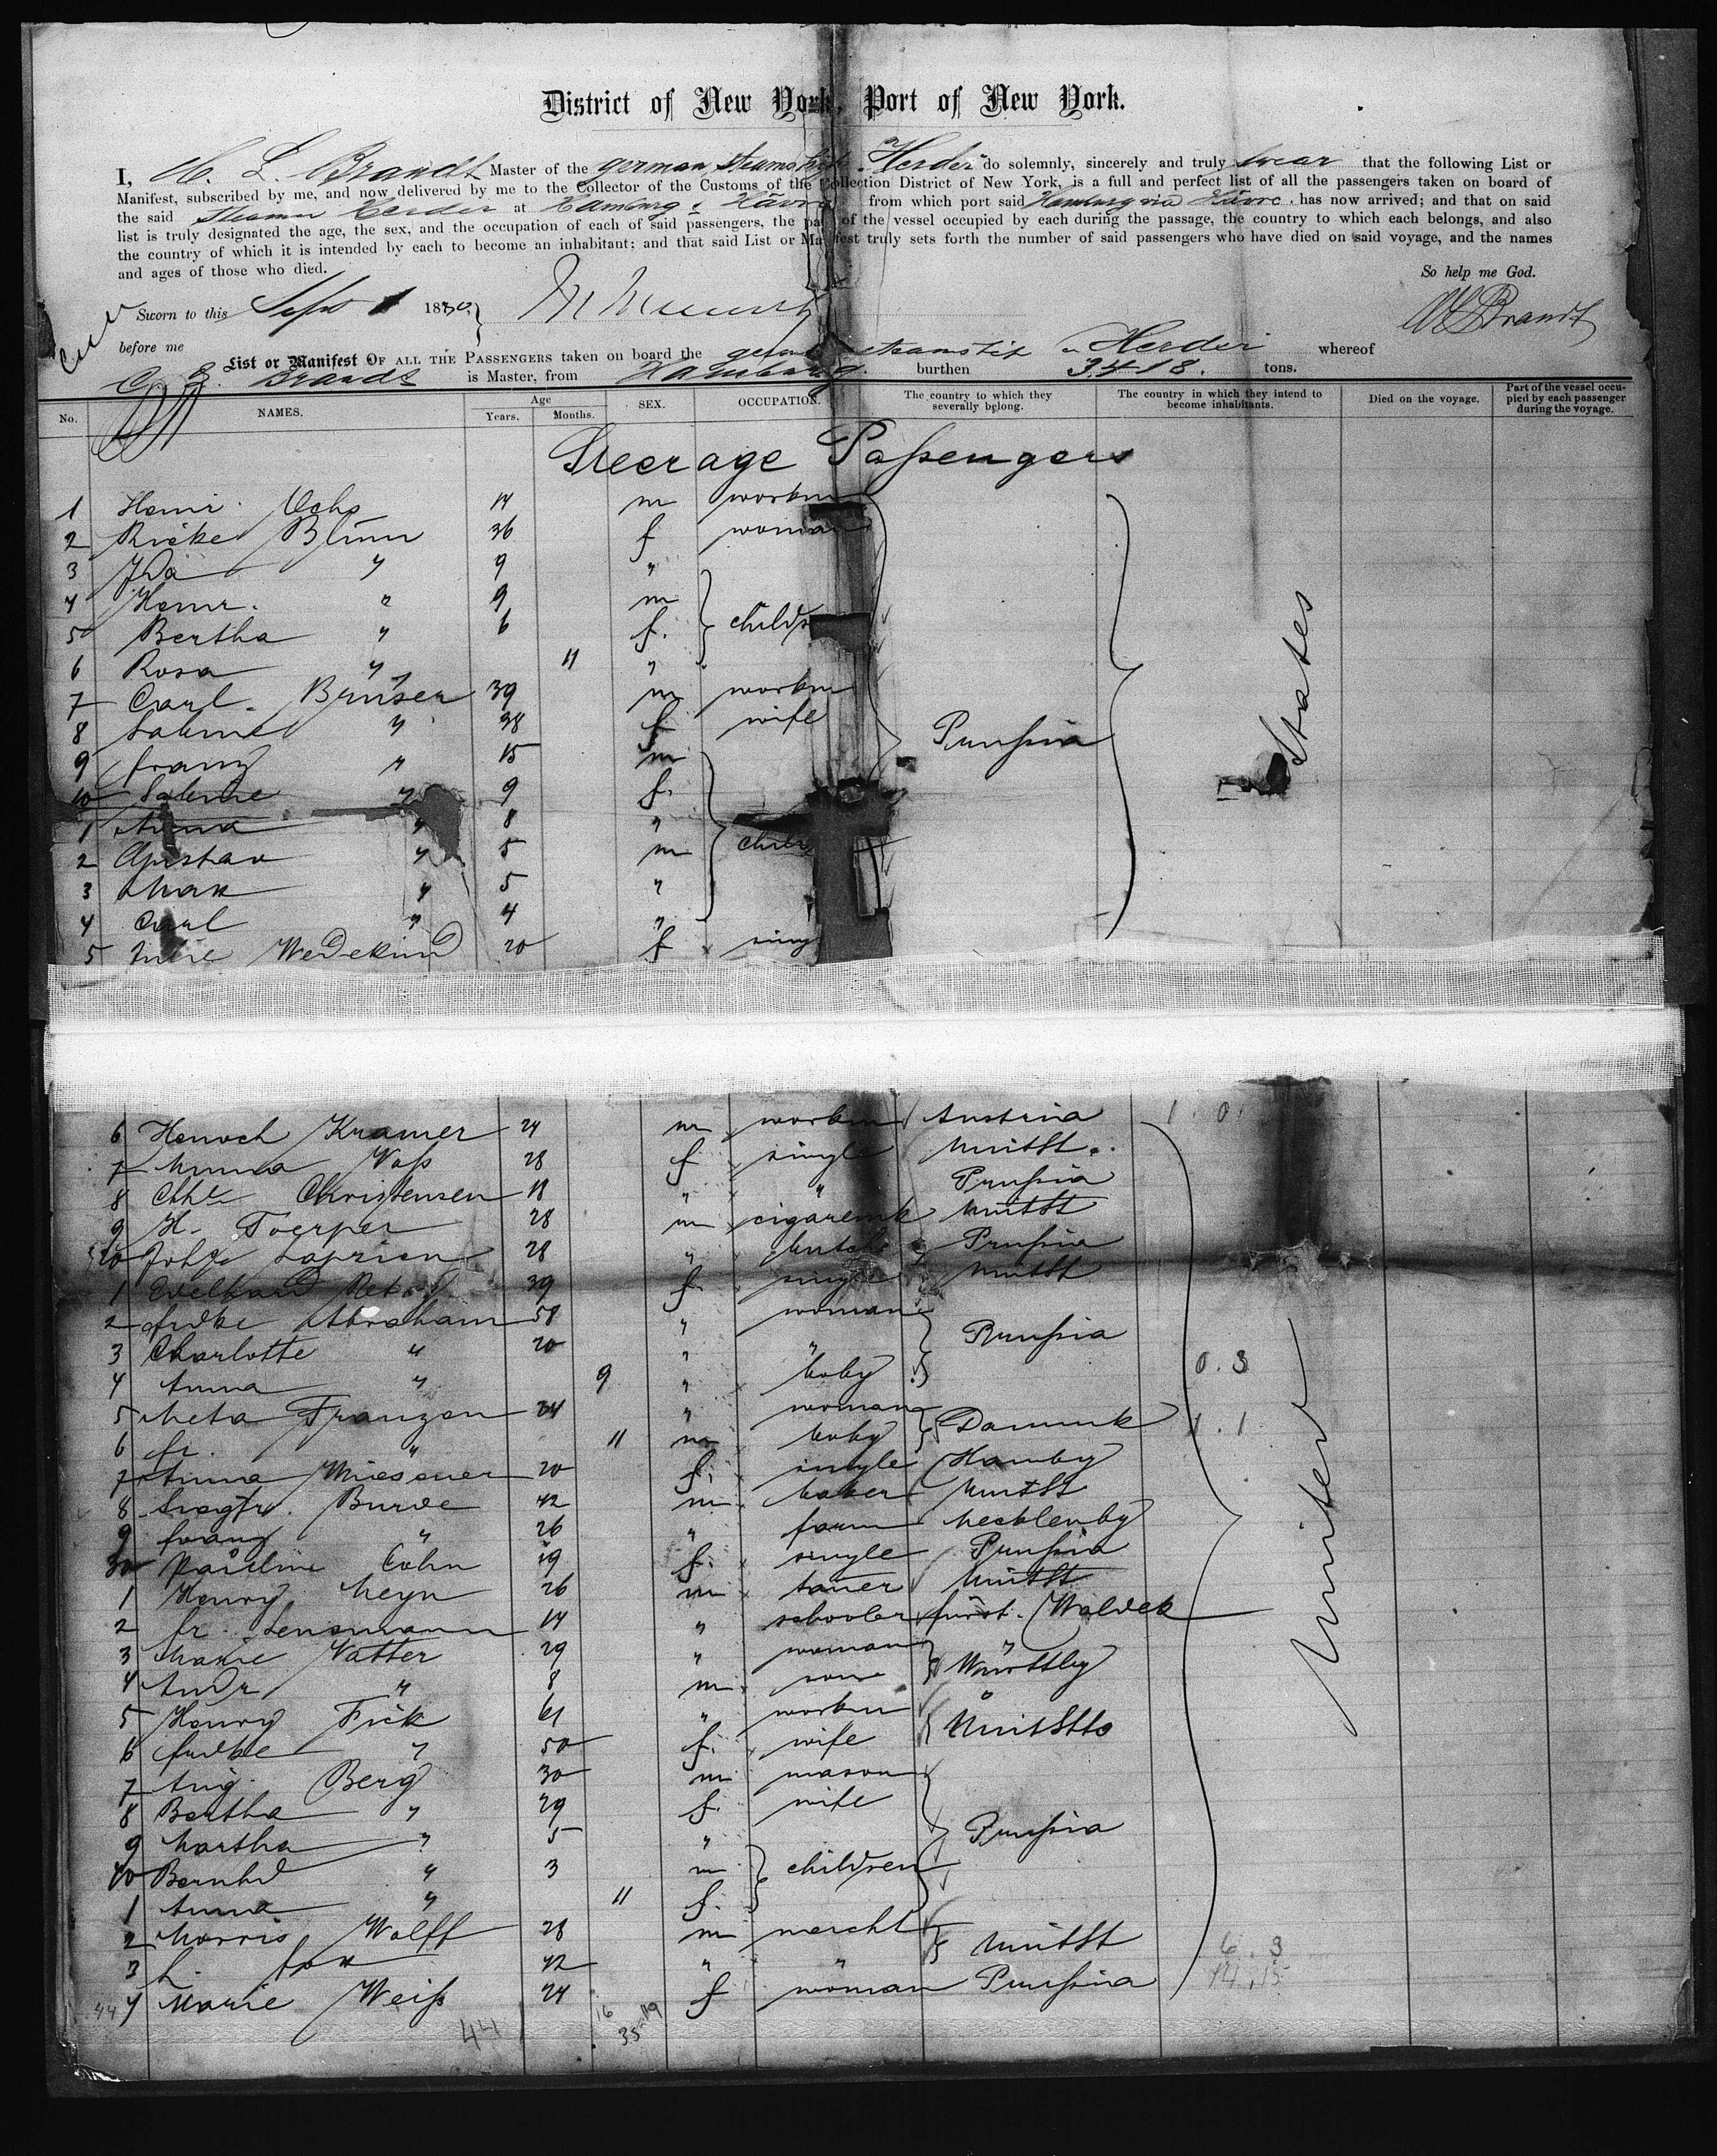 District of New York, Port of New York.
I, L. Brandt Master of the german steamship "Herder" do solemnly, sincerely and truly swear that the following List or
Manifest, subscribed by me, and now delivered by me to the Collector of the Customs of the Collection District of New York, is a full and perfect list of all the passengers taken on board of
the said Steamer Herder at Hamburg & Hâvre from which port said Hamburg via Hâvre has now arrived; and that on said
list is truly designated the age, the sex, and the occupation of each of said passengers, the part of the vessel occupied by each during the passage, the country to which each belongs, and also
the country of which it is intended by each to become an inhabitant; and that said List or Manifest truly sets forth the number of said passengers who have died on said voyage, and the names
and ages of those who died.
So help me God.
Sworn to this Sept 1 1880
Brandt
before me
List or Manifest OF ALL THE PASSENGERS taken on board the german steamship Herder whereof
Brandt is Master, from Hamburg burthen 3418. tons.
No. NAMES. Age Years. Months. SEX. OCCUPATION. The country to which they severally belong. The country in which they intend to become inhabitants. Died on the voyage. Part of the vessel occupied by each passenger during the voyage.
Steerage Passengers
1 Heinr. Ochs m workm
2 Rieke Blum 36 f woman
3 Ida " 9 "
4 Heinr. " 9 m
5 Bertha " 6 f. child
6 Rosa " 11 "
7 Carl Brunser 39 m workm
8 " 38 f wife Prussia
9 Franz " 15 m
10 " 9 f.
1 Anna " 8 "
2 Gustav " 5 m child
3 Max " 5 "
4 Carl " 4 "
5 Wedekind 20 f sing
States
6 Henoch Kramer 24 m workm Austria
7 Voss 28 f single UnitSt.
8 Christensen 18 " " Prussia
9 H. Toerper 28 m cigaremk UnitSt
20 28 " Prussia
1 39 f. single UnitSt
2 Abraham 58 " woman
3 Charlotte " 20 " " Prussia
4 Anna " 9 " baby 0.3
5 Meta Franzen 24 " woman Danmk 1.1
6 Fr. " 11 m baby
7 Anna 20 f. single Hambg
8 42 m baker UnitSt
9 Franz " 26 " farm Mecklenbg
30 Pauline Cohn 19 f. single Prussia
1 Henry Meyn 26 m UnitSt
2 Fr. Lensmann 14 " schooler fürst. Waldek
3 Marie Vatter 29 " woman Württbg
4 Andr " 8 m son
5 Henry Fick 61 " workm UnitStts
6 " 50 f. wife
7 Aug. Berg 30 m mason
8 Bertha " 29 f. wife
9 Martha " 5 " Prussia
40 Bernhd " 3 m children
1 Anna " 11 f.
2 Morris Wolff 28 m mercht UnitSt
3 L. Fox 42 " " 6.3
44 4 Marie Weiss 24 f woman Prussia 14.15
44 16 35 19
United